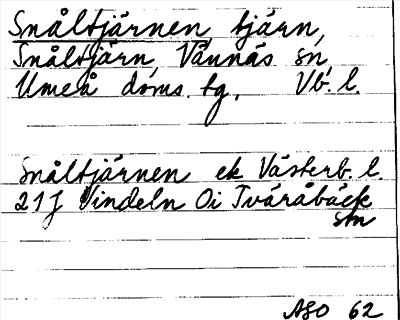 Snåltjärnen tjärn,
Snåltjärn, Vännäs sn,
Umeå doms. tg, Vb. l.
Snåltjärnen ek Västerb. l.
21J Vindeln Oi Tväråbäck
stn
ASO 62